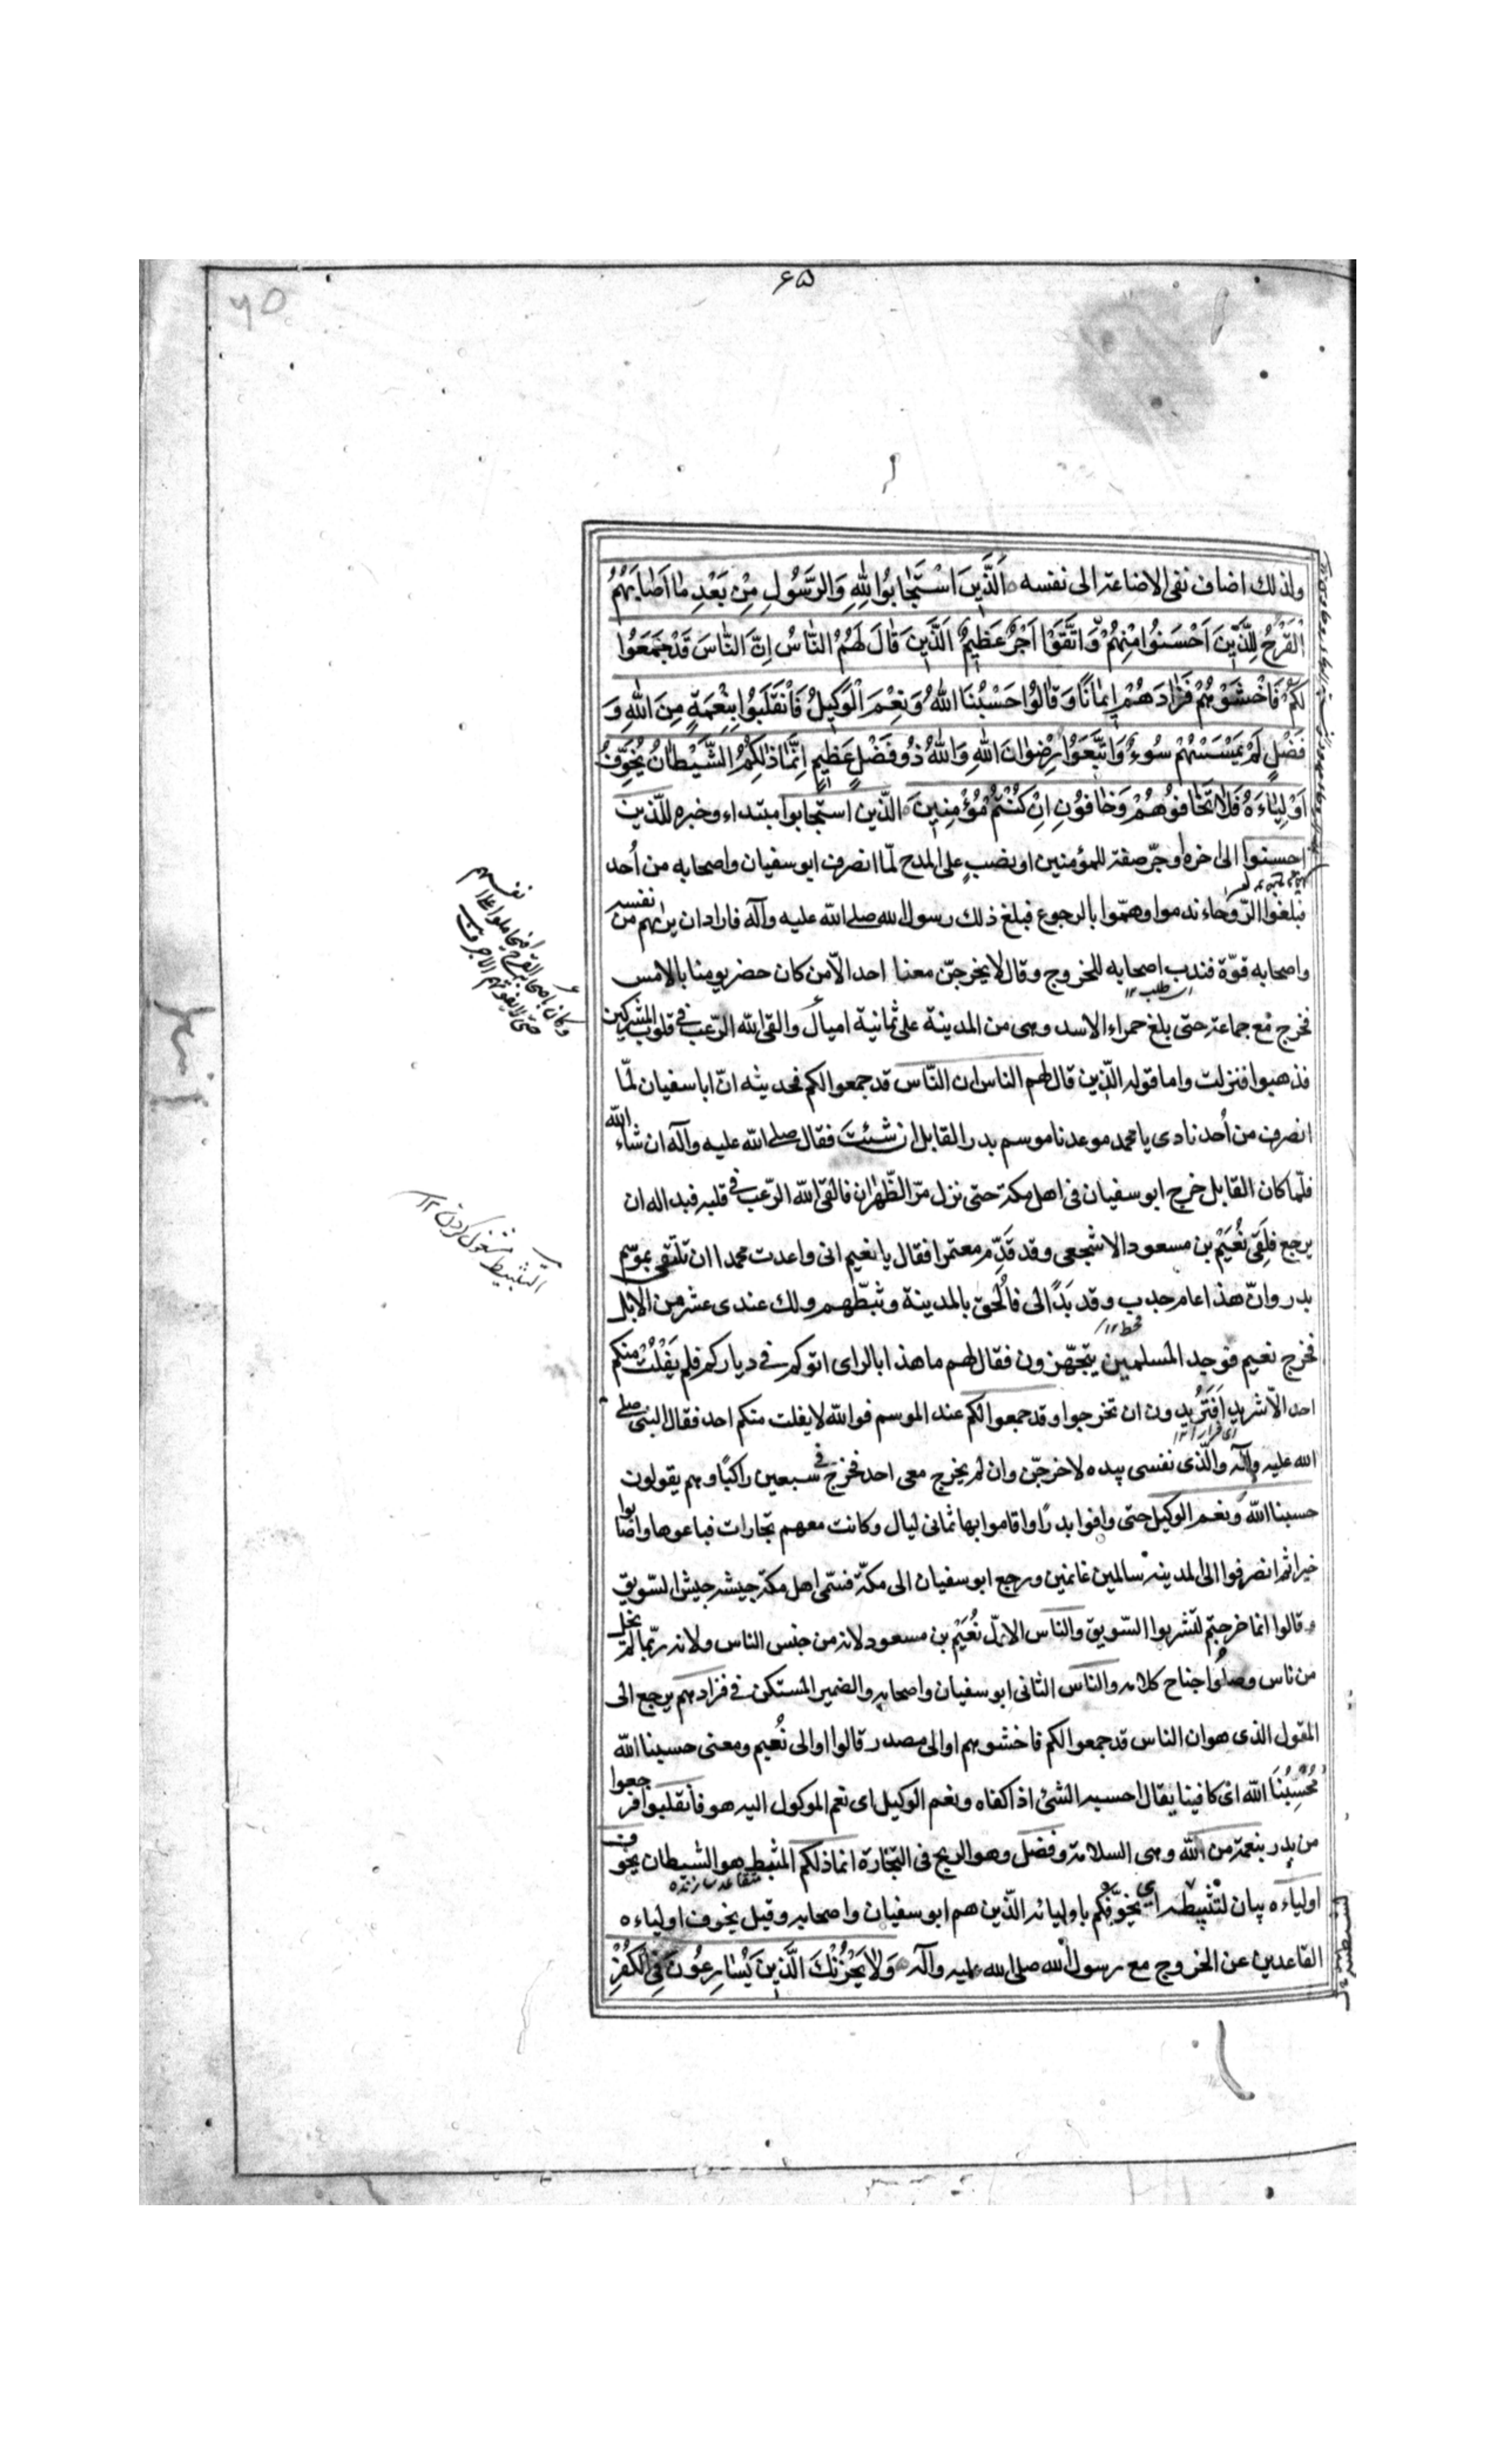 ۶۵
ولذلك اضاف نفى الاضاعة الى نفسه اَلَّذِينَ اسْتَجٰابُوا لِلّٰهِ وَالرَّسُولِ مِنْ بَعْدِ مٰا اَصٰابَهُمُ
الْقَرْحُ لِلَّذِينَ اَحْسَنُوا مِنْهُمْ وَاتَّقَوْا اَجْرٌ عَظِيمٌ اَلَّذِينَ قٰالَ لَهُمُ النّٰاسُ اِنَّ النّٰاسَ قَدْ جَمَعُوا
لَكُمْ فَاخْشَوْهُمْ فَزٰادَهُمْ اِيمٰانًا وَقٰالُوا حَسْبُنَا اللّٰهُ وَنِعْمَ الْوَكِيلُ فَانْقَلَبُوا بِنِعْمَةٍ مِنَ اللّٰهِ وَ
فَضْلٍ لَمْ يَمْسَسْهُمْ سُوءٌ وَاتَّبَعُوا رِضْوٰانَ اللّٰهِ وَاللّٰهُ ذُو فَضْلٍ عَظِيمٍ اِنَّمٰا ذٰلِكُمُ الشَّيْطٰانُ يُخَوِّفُ
اَوْلِيٰاءَهُ فَلٰا تَخٰافُوهُمْ وَخٰافُونِ اِنْ كُنْتُمْ مُؤْمِنِينَ الّذين استجابوا مبتداء وخبره للّذين
احسنوا الى اخره او جرّ صفة للمؤمنين او نصب على المدح لمّا انصرف ابو سفيان واصحابه من اُحد
فبلغوا الرّوحاء ندموا وهمّوا بالرجوع فبلغ ذلك رسول الله صلى الله عليه وآله فاراد ان يرهبهم من نفسه
واصحابه قوّة فندب اصحابه للخروج وقال لا يخرجنّ معنا احد الّا من كان حضر يومنا بالامس
اى طلب ۱۲
فخرج مع جماعة حتى بلغ حمراء الاسد وهى من المدينة على ثمانية اميال والقى الله الرّعب فى قلوب المشركين
فذهبوا فنزلت واما قوله الّذين قال لهم الناس ان النّاس قد جمعوا لكم فحديثه انّ ابا سفيان لمّا
انصرف من اُحد نادى يا محمد موعدنا موسم بدر القابل ان شئت فقال صلى الله عليه وآله ان شاء الله
فلمّا كان القابل خرج ابو سفيان فى اهل مكة حتى نزل مرّ الظّهران فالقى الله الرّعب فى قلبه فبدا له ان
يرجع فلَقِى نُعَيْم بن مسعود الاشجعى وقد قَدِم معتمرا فقال يا نعيم انى واعدت محمدا ان نلتقى بموسم
بدر وانّ هذا عام جدب وقد بَدَا لى فالْحق بالمدينة وثبّطهم ولك عندى عشر من الابل
قحط ۱۲
فخرج نعيم فوجد المسلمين يتجهّزون فقال لهم ما هذا بالراى اتوكم فى دياركم فلم يَفْلُتْ منكم
احد الّا شريد اَفَتَرُيدون ان تخرجوا وقد جمعوا لكم عند الموسم فوالله لا يفلت منكم احد فقال النبى صلى
الله عليه وآله والّذى نفسى بيده لاخرجنّ وان لم يخرج معى احد فخرج فى سبعين راكبًا وهم يقولون
حسبنا الله ونعم الوكيل حتى وافوا بدرًا واقاموا بها ثمانى ليال وكانت معهم تجارات فباعوها واصابوا
خيرا ثم انصرفوا الى المدينة سالمين غانمين ورجع ابو سفيان الى مكّة فسمّى اهل مكة جيشه جيش السّويق
وقالوا انما خرجتم لتشربوا السّويق والناس الاوّل نُعَيْم بن مسعود لانه من جنس الناس ولانه ربّما لم يخل
من ناس وصلُوا جناح كلامه والناس الثانى ابو سفيان واصحابه والضمير المستكن فى فزادهم يرجع الى
المقول الذى هو ان الناس قد جمعوا لكم فاخشوهم او الى مصدر قالوا او الى نُعيم ومعنى حسبنا الله
مُحْسِبُنَا الله اى كافينا يقال احسبه الشئ اذا كفاه ونعم الوكيل اى نعم الموكول اليه هو فانقلبوا فرجعوا
من بدر بنعمة من الله وهى السلامة وفضل وهو الربح فى التّجارة انما ذلكم المثبط هو الشيطان يخوف
اولياءه بيان لتثبيطه اى يخوّفكم باوليائه الّذين هم ابو سفيان واصحابه وقيل يخوف اولياءه
القاعدين عن الخروج مع رسول الله صلى الله عليه وآله وَلٰا يَحْزُنْكَ الَّذِينَ يُسٰارِعُونَ فِى الْكُفْرِ
وكان باصحابه القرح فتحاملوا على
نفسهم
حتى لا يفوتهم الاجر
التثبيط مشغول كردن ۱۲